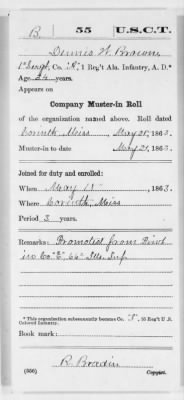 B | 55 | U.S.C.T.
Dennis W. Brown
1" Sergt, Co. "B," 1 Reg't Ala. Infantry, A. D.*
Age 24 years.
Appears on
Company Muster-in Roll
of the organization named above. Roll dated
Corinth, Miss, May 21, 1863.
Muster-in to date May 21, 1863.
Joined for duty and enrolled:
When May 18, 1863.
Where Corinth, Miss
Period 3 years.
Remarks: Promoted from
in Co. "E," 66" Ills. Inf
* This organization subsequently became Co. "B," 55 Reg't U. S. Colored Infantry.
Book mark:
R. Bradin
(356) Copyist.